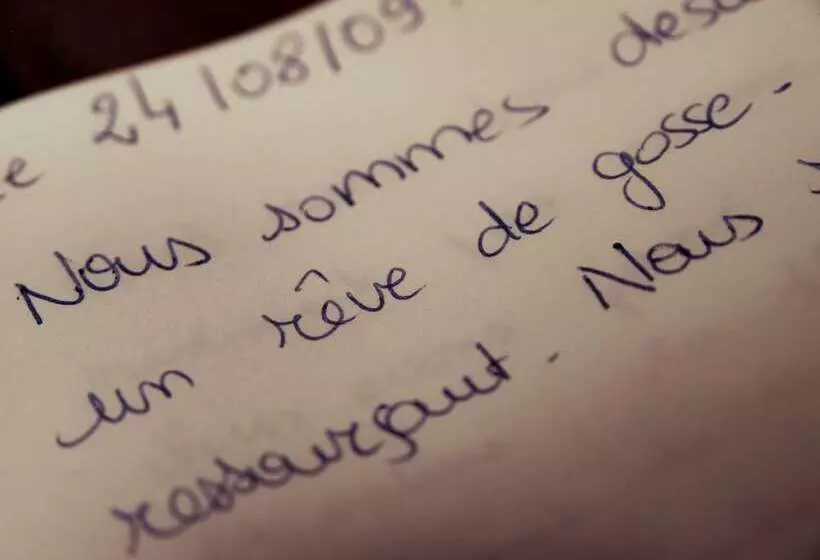 e 24/08/09.
Nous sommes des
un rêve de gosse.
ressourçant. Nous s